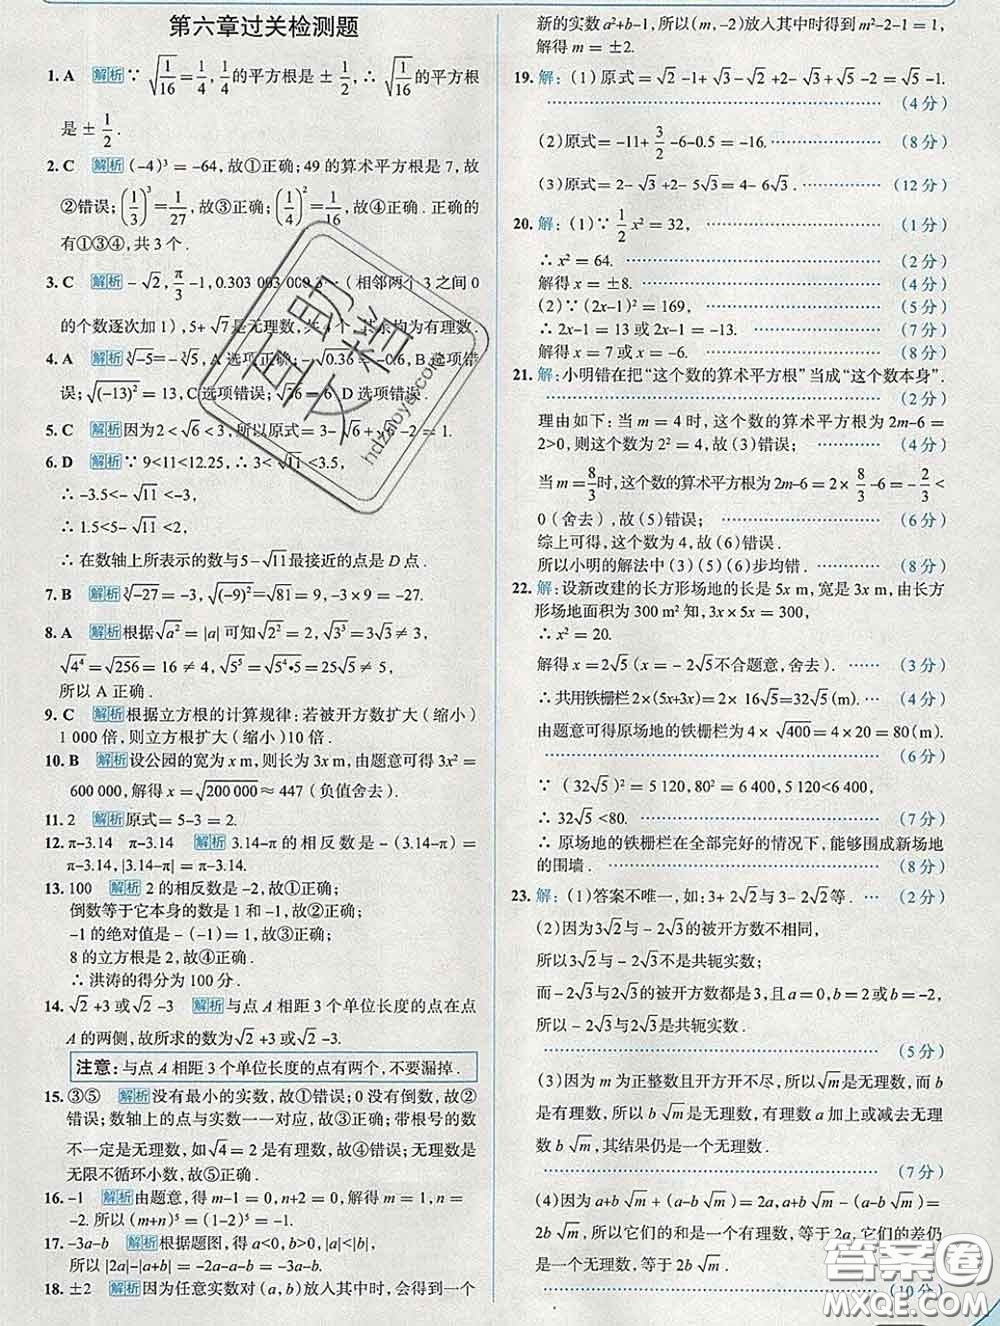 第六章过关检测题
1. A 解析 ∵ √(1/16) = 1/4, 1/4 的平方根是 ± 1/2, ∴ √(1/16) 的平方根
是 ± 1/2 .
2. C 解析 (-4)³ = -64, 故①正确; 49 的算术平方根是 7, 故
②错误; (1/3)³ = 1/27, 故③正确; (1/4)² = 1/16, 故④正确 . 正确的
有①③④, 共 3 个 .
3. C 解析 -√2, π/3 -1, 0.303 003 000 3…(相邻两个 3 之间 0
的个数逐次加 1), 5+√7是无理数, 共 4 个, 其余均为有理数 .
4. A 解析 ∛-5 = -∛5, A 选项正确; -√0.36 = -0.6, B 选项错
误; √(-13)² = 13, C 选项错误; √36 = 6, D 选项错误 .
5. C 解析 因为 2 < √6 < 3, 所以原式 = 3-√6 +√6 -2 = 1.
6. D 解析 ∵ 9<11<12.25, ∴ 3< √11 <3.5,
∴ -3.5<-√11 <-3,
∴ 1.5<5-√11 <2,
∴ 在数轴上所表示的数与5-√11最接近的点是 D 点 .
7. B 解析 ∛-27 = -3, √(-9)² = √81 = 9, -3 × 9 = -27.
8. A 解析 根据√a² = |a| 可知√2² = 2, √3³ = 3√3 ≠ 3,
√4⁴ = √256 = 16 ≠ 4, √5⁵ = √5⁴•5 = 25√5 ≠ 5,
所以 A 正确 .
9. C 解析 根据立方根的计算规律: 若被开方数扩大 (缩小)
1 000 倍, 则立方根扩大 (缩小)10 倍 .
10. B 解析 设公园的宽为 x m, 则长为 3x m, 由题意可得 3x² =
600 000, 解得 x = √200 000 ≈ 447 (负值舍去) .
11. 2 解析 原式 = 5-3 = 2.
12. π-3.14 π-3.14 解析 3.14-π 的相反数是 -(3.14-π) =
π-3.14, |3.14-π| = π-3.14.
13. 100 解析 2 的相反数是 -2, 故①正确;
倒数等于它本身的数是 1 和 -1, 故②正确;
-1 的绝对值是 -(-1) = 1, 故③正确;
8 的立方根是 2, 故④正确 .
∴ 洪涛的得分为 100 分 .
14. √2 +3 或√2 -3 解析 与点 A 相距 3 个单位长度的点在点
A 的两侧, 故所求的数为√2 +3 或√2 -3.
注意: 与点 A 相距 3 个单位长度的点有两个, 不要漏掉 .
15. ③⑤ 解析 没有最小的实数, 故①错误; 0 没有倒数, 故②
错误; 数轴上的点与实数一一对应, 故③正确; 带根号的数
不一定是无理数, 如√4 = 2 是有理数, 故④错误; 无理数是
无限不循环小数, 故⑤正确 .
16. -1 解析 由题意, 得 m-1 = 0, n+2 = 0, 解得 m = 1, n =
-2. 所以 (m+n)⁵ = (1-2)⁵ = -1.
17. -3a-b 解析 根据题图, 得 a<0, b>0, |a|<|b|,
所以 |2a|-|a+b| = -2a-a-b = -3a-b.
18. ±2 解析 因为任意实数对 (a, b) 放入其中时, 会得到一个
新的实数 a²+b-1, 所以 (m, -2) 放入其中时得到 m²-2-1 = 1,
解得 m = ± 2.
19. 解: (1) 原式 = √2 -1+ √3 -√2 +2-√3 +√5 -2 = √5 -1.
(4 分)
(2) 原式 = -11+ 3/2 -6-0.5 = -16. (8 分)
(3) 原式 = 2- √3 +2-5√3 = 4-6√3 . (12 分)
20. 解: (1) ∵ 1/2 x² = 32, (1 分)
∴ x² = 64. (2 分)
解得 x = ±8. (4 分)
(2) ∵ (2x-1)² = 169, (5 分)
∴ 2x-1 = 13 或 2x-1 = -13. (7 分)
解得 x = 7 或 x = -6. (8 分)
21. 解: 小明错在把“这个数的算术平方根”当成“这个数本身”.
(2 分)
理由如下: 当 m = 4 时, 这个数的算术平方根为 2m-6 =
2>0, 则这个数为 2² = 4, 故 (3) 错误; (4 分)
当 m = 8/3 时, 这个数的算术平方根为 2m-6 = 2× 8/3 -6 = - 2/3 <
0 (舍去), 故 (5) 错误; (6 分)
综上可得, 这个数为 4, 故 (6) 错误 .
所以小明的解法中 (3) (5) (6) 步均错 . (8 分)
22. 解: 设新改建的长方形场地的长是 5x m, 宽是 3x m, 由长方
形场地面积为 300 m² 知, 3x × 5x = 300,
∴ x² = 20.
解得 x = 2√5 (x = - 2√5 不合题意, 舍去) . (3 分)
∴ 共用铁栅栏 2×(5x+3x) = 2× 16√5 = 32√5 (m) . (4 分)
由题意可得原场地的铁栅栏为 4 × √400 = 4 × 20 = 80 (m) .
(6 分)
∵ (32√5 )² = 5 120, 80² = 6 400, 5 120<6 400,
∴ 32√5 <80. (7 分)
∴ 原场地的铁栅栏在全部完好的情况下, 能够围成新场地
的围墙 . (8 分)
23. 解: (1) 答案不唯一, 如: 3+ 2√2 与 3- 2√2 等 . (2 分)
(2) 因为 3√2 与 - 2√3 的被开方数不相同,
所以 3√2 与 - 2√3 不是共轭实数;
而 -2√3 与 2√3 的被开方数都是 3, 且 a = 0, b = 2 或 b = -2,
所以 -2√3 与 2√3 是共轭实数 .
(5 分)
(3) 因为 m 为正整数且开方开不尽, 所以√m是无理数, 而 b
是有理数, 所以 b√m是无理数, 有理数 a 加上或减去无理
数 b√m, 其结果仍是一个无理数 .
(7 分)
(4) 因为 a+b√m + (a-b√m) = 2a, a+b√m - (a-b√m) =
2b√m, 所以它们的和是一个有理数, 等于 2a, 它们的差仍
是一个无理数, 等于 2b√m .
(10 分)
互助文档
hdzuoye.com
答案圈
MXQE.COM